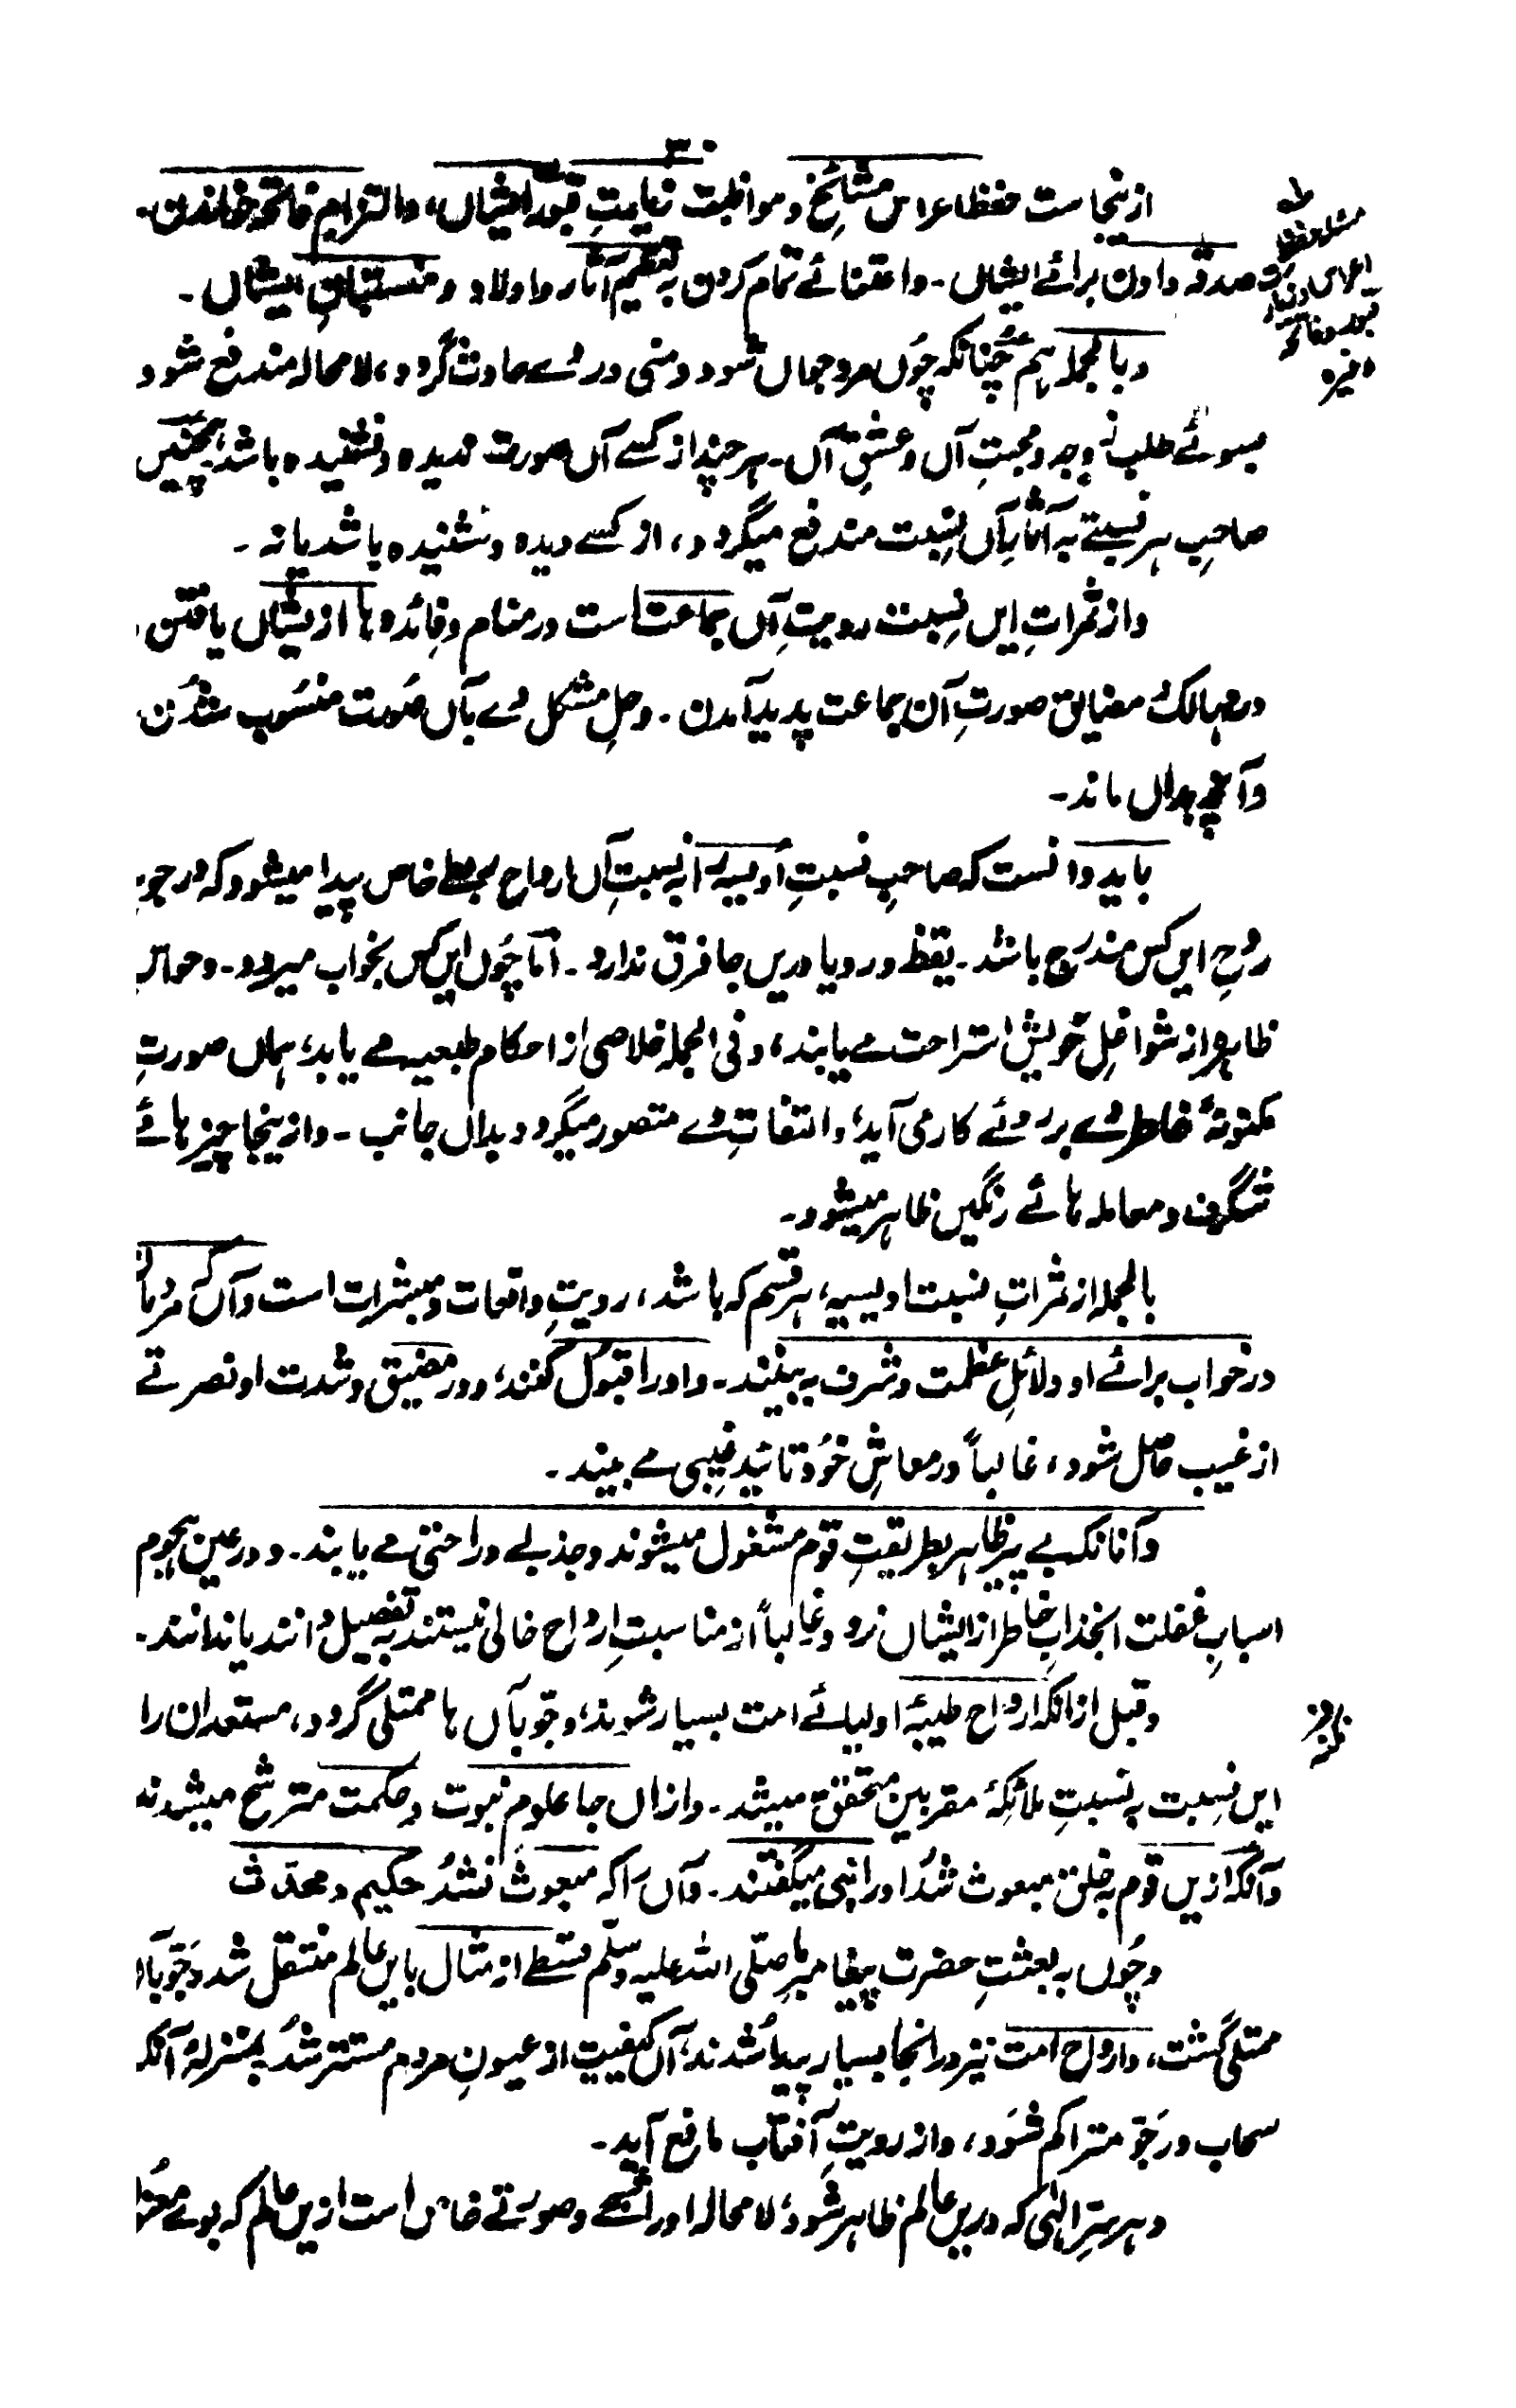 ۳۰
ازینجاست حفظ اعراس مشائخ و مواظبت زیارتِ قبور ایشاں، والتزام فاتحہ خواندن۔
و صدقہ دادن برائے ایشاں۔ واعتنائے تمام کردن بہ تعظیم آثار و اولاد و منتسبانِ ایشاں۔
مسئلہ حفظ
اعراس و زیارت
قبور و فاتحہ
وغیرہ
و بالجملہ ہم چنانکہ چُوں مرد جواں شود و منی در وے حادث گردد، لا محالہ مندفع شود
بسوئے طلب و محبتِ آں و عشقِ آں۔ ہر چند از کسے آں صورت ندیدہ و نشنیدہ باشد، ہمچنیں
صاحبِ ہر نسبتے بہ آثارِ آں نسبت مندفع میگردد، از کسے دیدہ و شنیدہ باشد یا نہ۔
و از ثمراتِ ایں نسبت رویتِ آں جماعت است در منام و فائدہ ہا از یشاں یافتن
در مہالک و مضیایق صورتِ آن جماعت پدید آمدن۔ وحلِ مشکل وے بآں صورت منسوب شدن
وآنچہ بداں ماند۔
باید دانست کہ صاحبِ نسبتِ اُویسیہ را بہ نسبتِ آں ارواح ربطے خاص پیدا میشود کہ در جوہر
رُوحِ ایں کس مندرج باشد۔ یقظہ و رویا دریں جا فرق ندارد۔ امّا چُوں ایں کس بخواب میرود۔ و حواسِ
ظاہر از شواغلِ خویش استراحت مے یابند، و فی الجملہ خلاصی از احکام طبعیہ مے یابد، ہماں صورتِ
مکنونۂ خاطرِ وے بر روئے کار می آید، و التفاتِ وے متصور میگردد بداں جانب۔ و ازینجا چیزہائے
شگرف و معاملہ ہائے رنگیں ظاہر میشود۔
بالجملہ از ثمراتِ نسبت اویسیہ، ہر قسم کہ باشد، رویتِ واقعات و مبشرات است و آں کہ مردماں
در خواب برائے او دلائلِ عظمت و شرف بہ بینند۔ و او را قبول کنند، و در مضیق و شدت او نصرتے
از غیب حاصل شود، غالباً در معاشِ خود تائیدِ غیبی مے بیند۔
و آنانکہ بے پیرِ ظاہر بطریقتِ قوم مشغول میشوند و جذبے و راحتی مے یابند۔ و در عین ہجوم
اسبابِ غفلت انجذابِ خاطر از ایشاں نرود و غالباً از مناسبتِ ارواح خالی نیستند بہ تفصیل دانند یا ندانند۔
و قبل ازانکہ ارواحِ طیبۂ اولیائے امت بسیار شوند، و جَوّ بآں ہا ممتلی گردد، مستعدان را
ایں نسبت بہ نسبتِ ملائکۂ مقربین متحقق میشد۔ و ازاں جا علومِ نبوت و حکمت مترشح میشدند
و آنکہ ازیں قوم بخلق مبعوث شد او را نبی میگفتند۔ و آں را کہ مبعوث نشد حکیم و محدّث
و چُوں بہ بعثتِ حضرت پیغامبرِ ما صلّی اللہ علیہ وسلّم قسطے از مثال بایں عالم منتقل شد و جَوّ بآں
ممتلی گشت، و ارواحِ امت نیز در انجا بسیار پیدا شدند، آں کیفیت از عیونِ مردم مستتر شد بمنزلۂ آنکہ
سحاب در جَوّ متراکم شود، و از رویتِ آفتاب مانع آید۔
و ہر سِرِّ الٰہی کہ دریں عالم ظاہر شود، لا محالہ او را شبحے و صورتے خاص است ازیں عالم کہ بوے